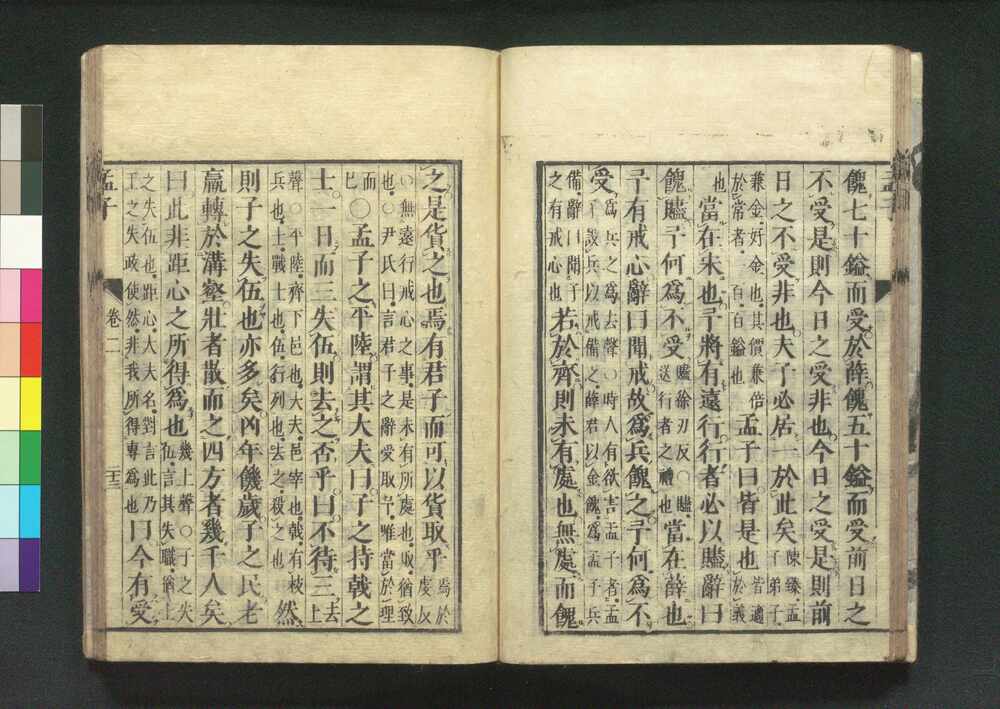 餽七十鎰而受於薛餽五十鎰而受前日之
不受是則今日之受非也今日之受是則前
日之不受非也夫子必居一於此矣陳臻孟子弟子
兼金好金也其價兼倍於常者一百百鎰也孟子曰皆是也皆適於義
也當在宋也予將有遠行行者必以贐辭曰
餽贐予何為不受贐徐刃反○贐送行者之禮也當在薛也
予有戒心辭曰聞戒故為兵餽之予何為不
受為兵之為去聲○時人有欲害孟子者孟子設兵以戒備之薛君以金餽為孟子兵
備辭曰聞子之有戒心也若於齊則未有處也無處而餽
之是貨之也焉有君子而可以貨取乎焉於虔反
○無遠行戒心之事是未有所處也取猶致也○尹氏曰言君子之辭受取予唯當於理
而已○孟子之平陸謂其大夫曰子之持戟之
士一日而三失伍則去之否乎曰不待三去上
聲○平陸齊下邑也大夫邑宰也戟有枝兵也士戰士也伍行列也去之殺之也然
則子之失伍也亦多矣凶年饑歲子之民老
羸轉於溝壑壯者散而之四方者幾千人矣
曰此非距心之所得為也幾上聲○子之失伍言其失職猶士
之失伍也距心大夫名對言此乃王之失政使然非我所得專為也曰今有受
孟子
卷二
二十三